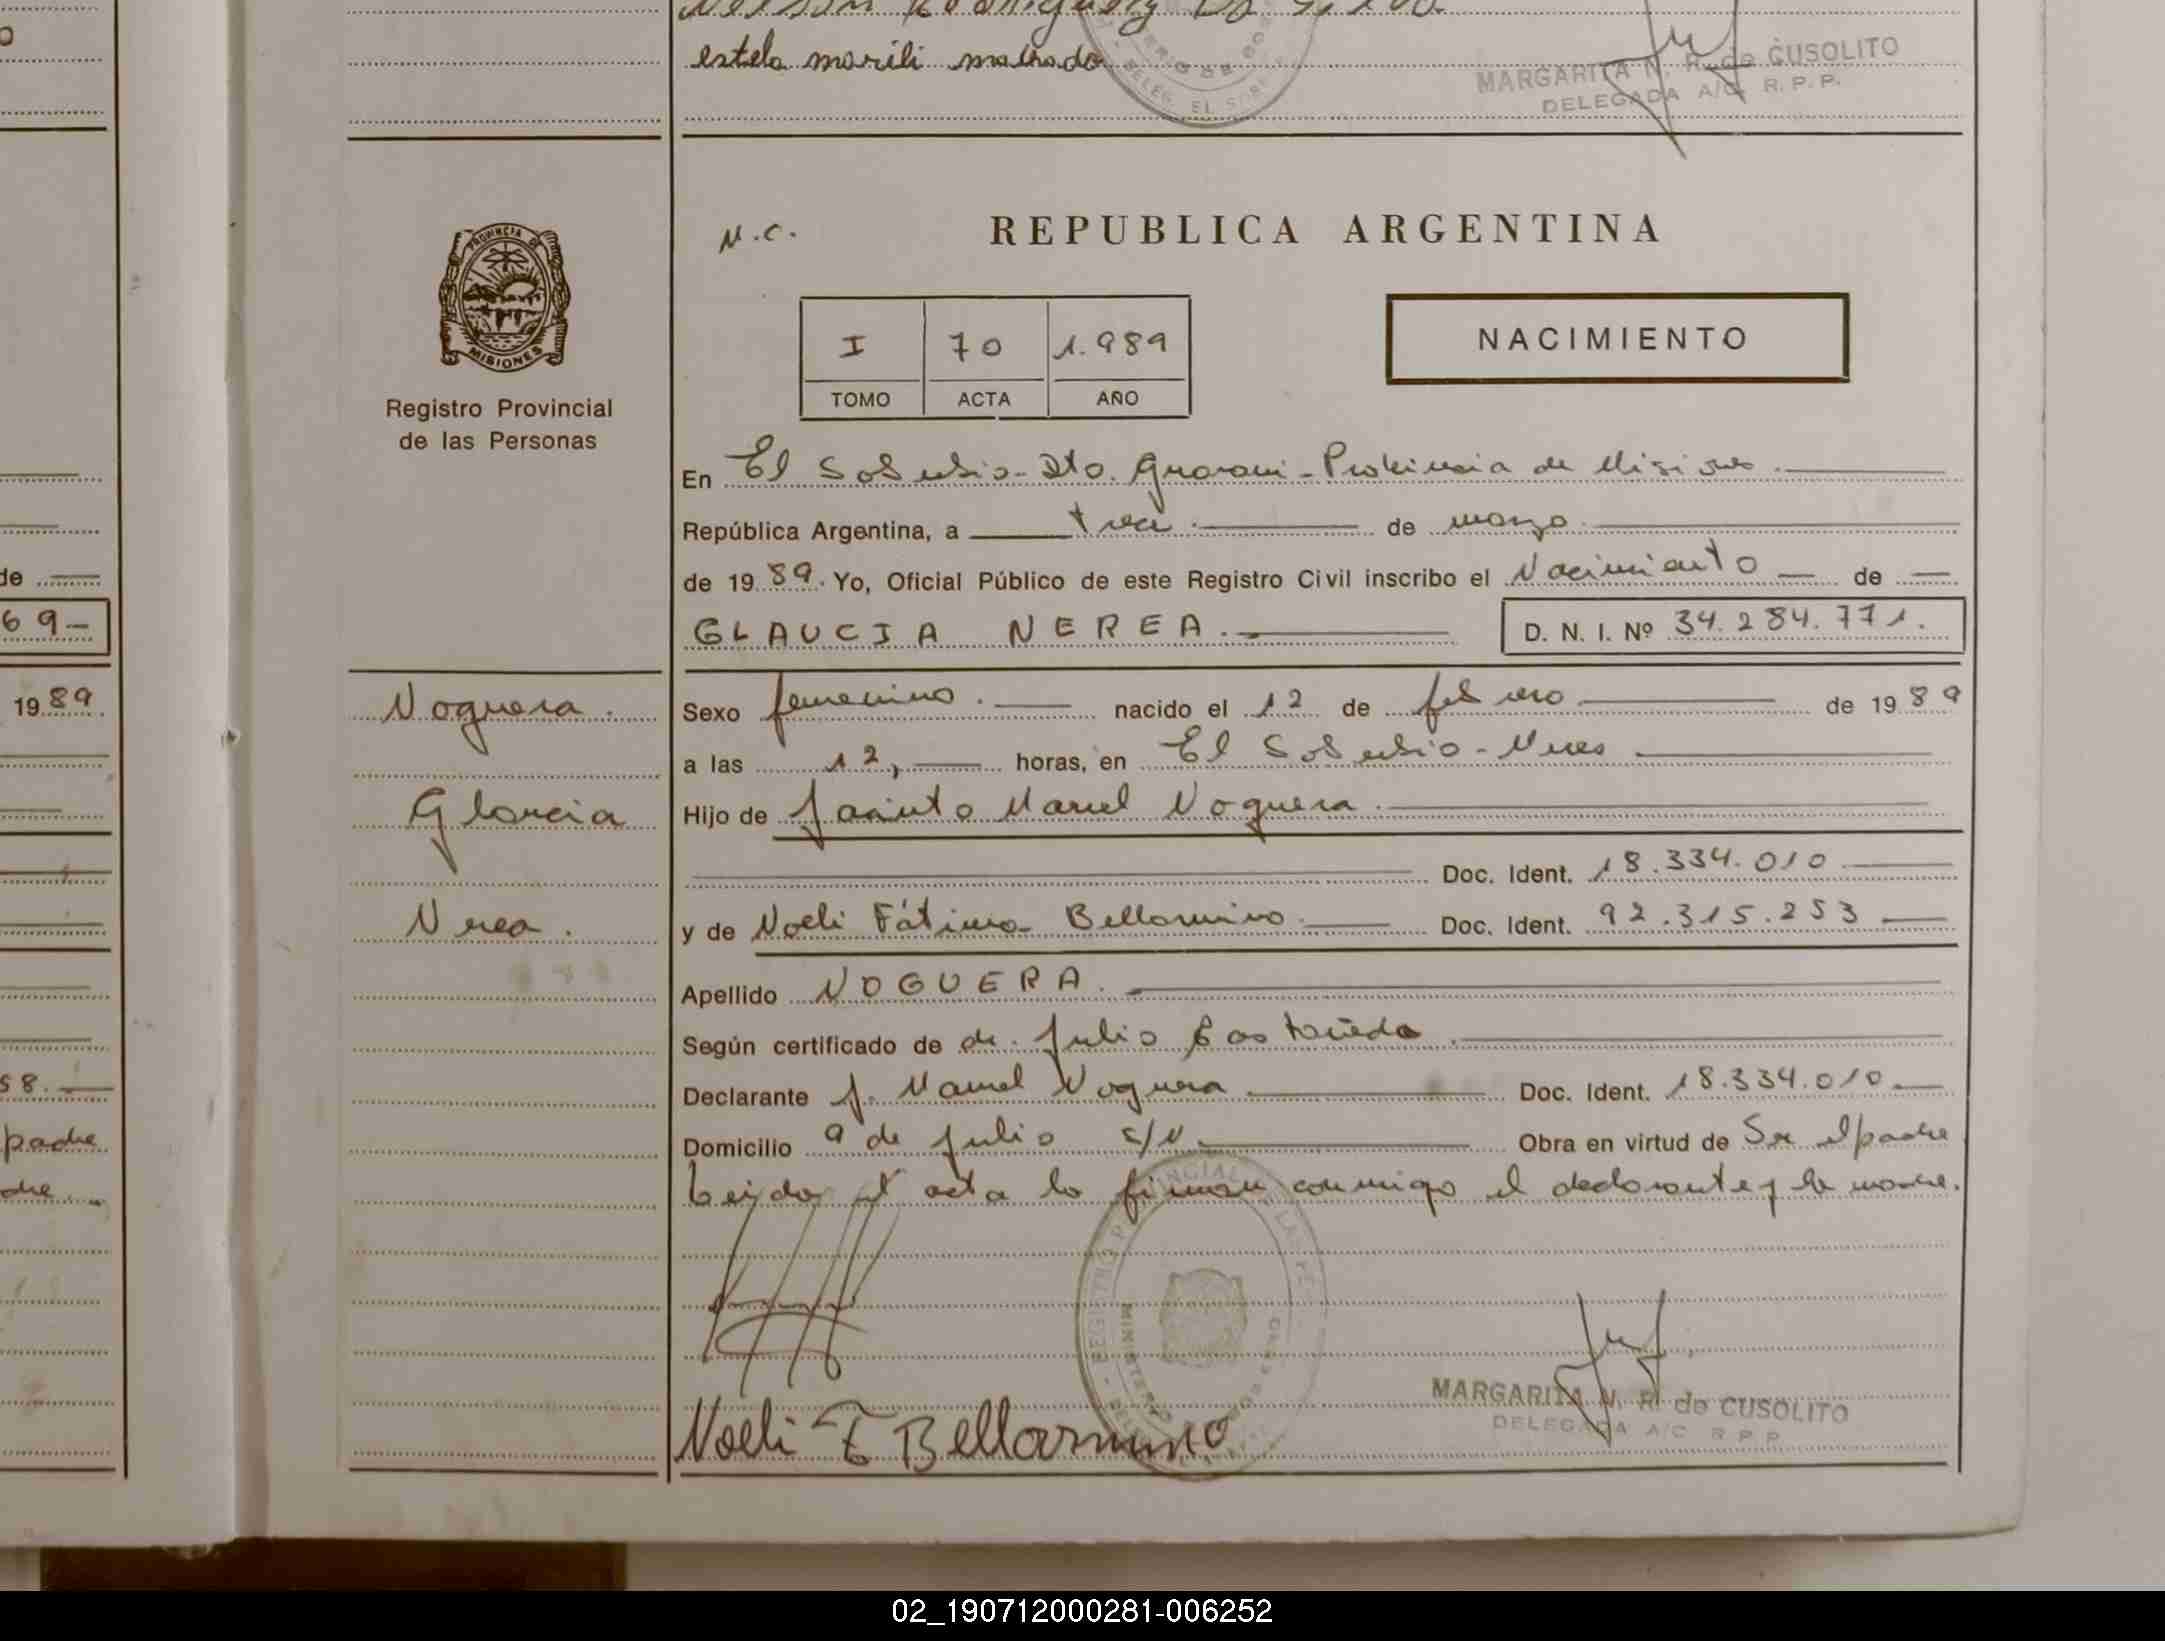 estela marili machado
MARGARITA N. R. de CUSOLITO
DELEGADA A/C. R. P. P.
PROVINCIA DE
MISIONES
Registro Provincial
de las Personas
N.C.
REPUBLICA ARGENTINA
I 70 1.989
TOMO ACTA AÑO
NACIMIENTO
En El Soberbio - Dto. Guarani - Provincia de Misiones.
República Argentina, a trece de marzo
de 1989. Yo, Oficial Público de este Registro Civil inscribo el Nacimiento de
GLAUCIA NEREA. D. N. I. Nº 34.284.771.
de
69-
1989
Noguera.
Glaucia
Nerea.
Sexo femenino. nacido el 12 de febrero de 1989
a las 12, horas, en El Soberbio - Mnes
Hijo de Jacinto Manuel Noguera.
Doc. Ident. 18.334.010
y de Noeli Fátima Bellarmino. Doc. Ident. 92.315.253
Apellido NOGUERA.
Según certificado de dr. Julio Castañeda.
Declarante J. Manuel Noguera Doc. Ident. 18.334.010
Domicilio 9 de Julio s/N. Obra en virtud de Ser el padre
Leida el acta la firman conmigo el declarante y la madre.
58.
padre
Noeli F Bellarmino
MARGARITA N. R. de CUSOLITO
DELEGADA A/C R P P
02_190712000281-006252